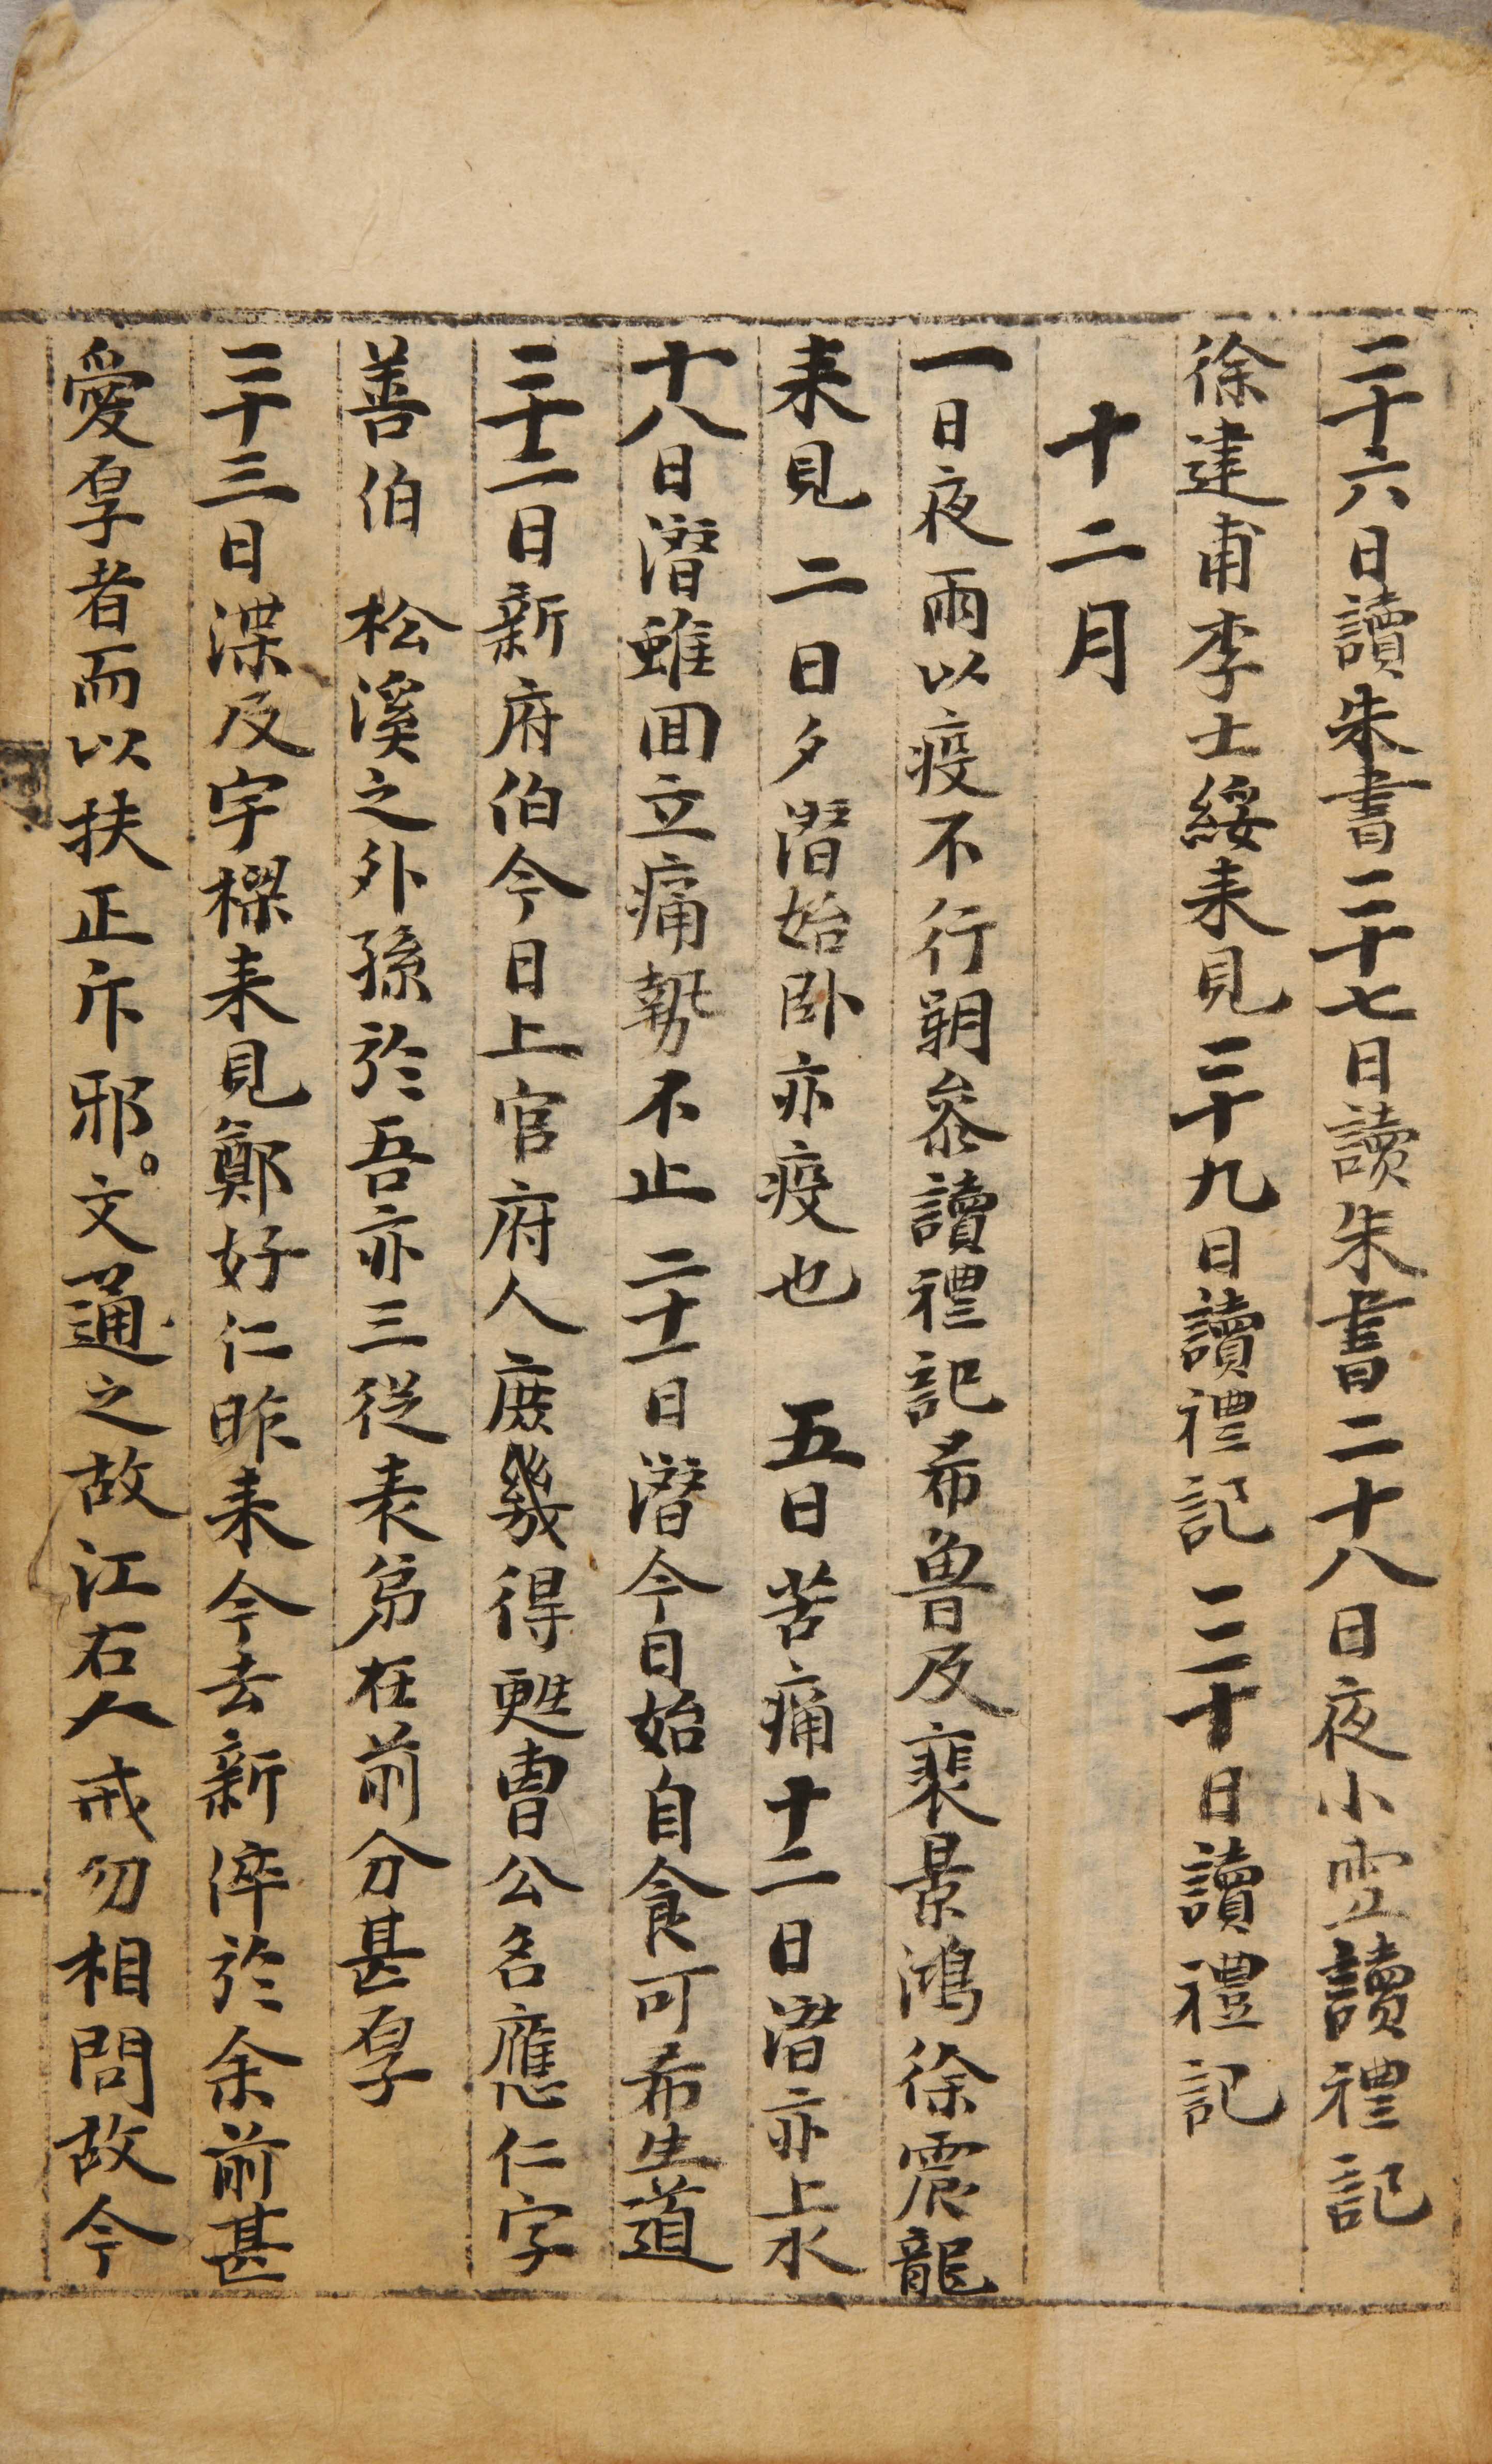 二十六日讀朱書二十七日讀朱書二十八日夜小雪讀禮記
徐建甫李士綏来見二十九日讀禮記 三十日讀禮記
十二月
一日夜雨以疫不行朔叅讀禮記希魯及裵景鴻徐震龍
来見 二日夕潛始卧亦疫也 五日苦痛十二日潛亦上水
十八日潛雖回立痛勢不止 二十一日潛今日始自食可希生道
二十二日新府伯今日上官府人庶幾得甦曺公名應仁字
善伯 松溪之外孫於吾亦三從表弟在前分甚厚
二十三日渫及宇樑来見鄭好仁昨来今去新倅於余前甚
愛厚者而以扶正斥邪。文通之故江右人戒勿相問故今